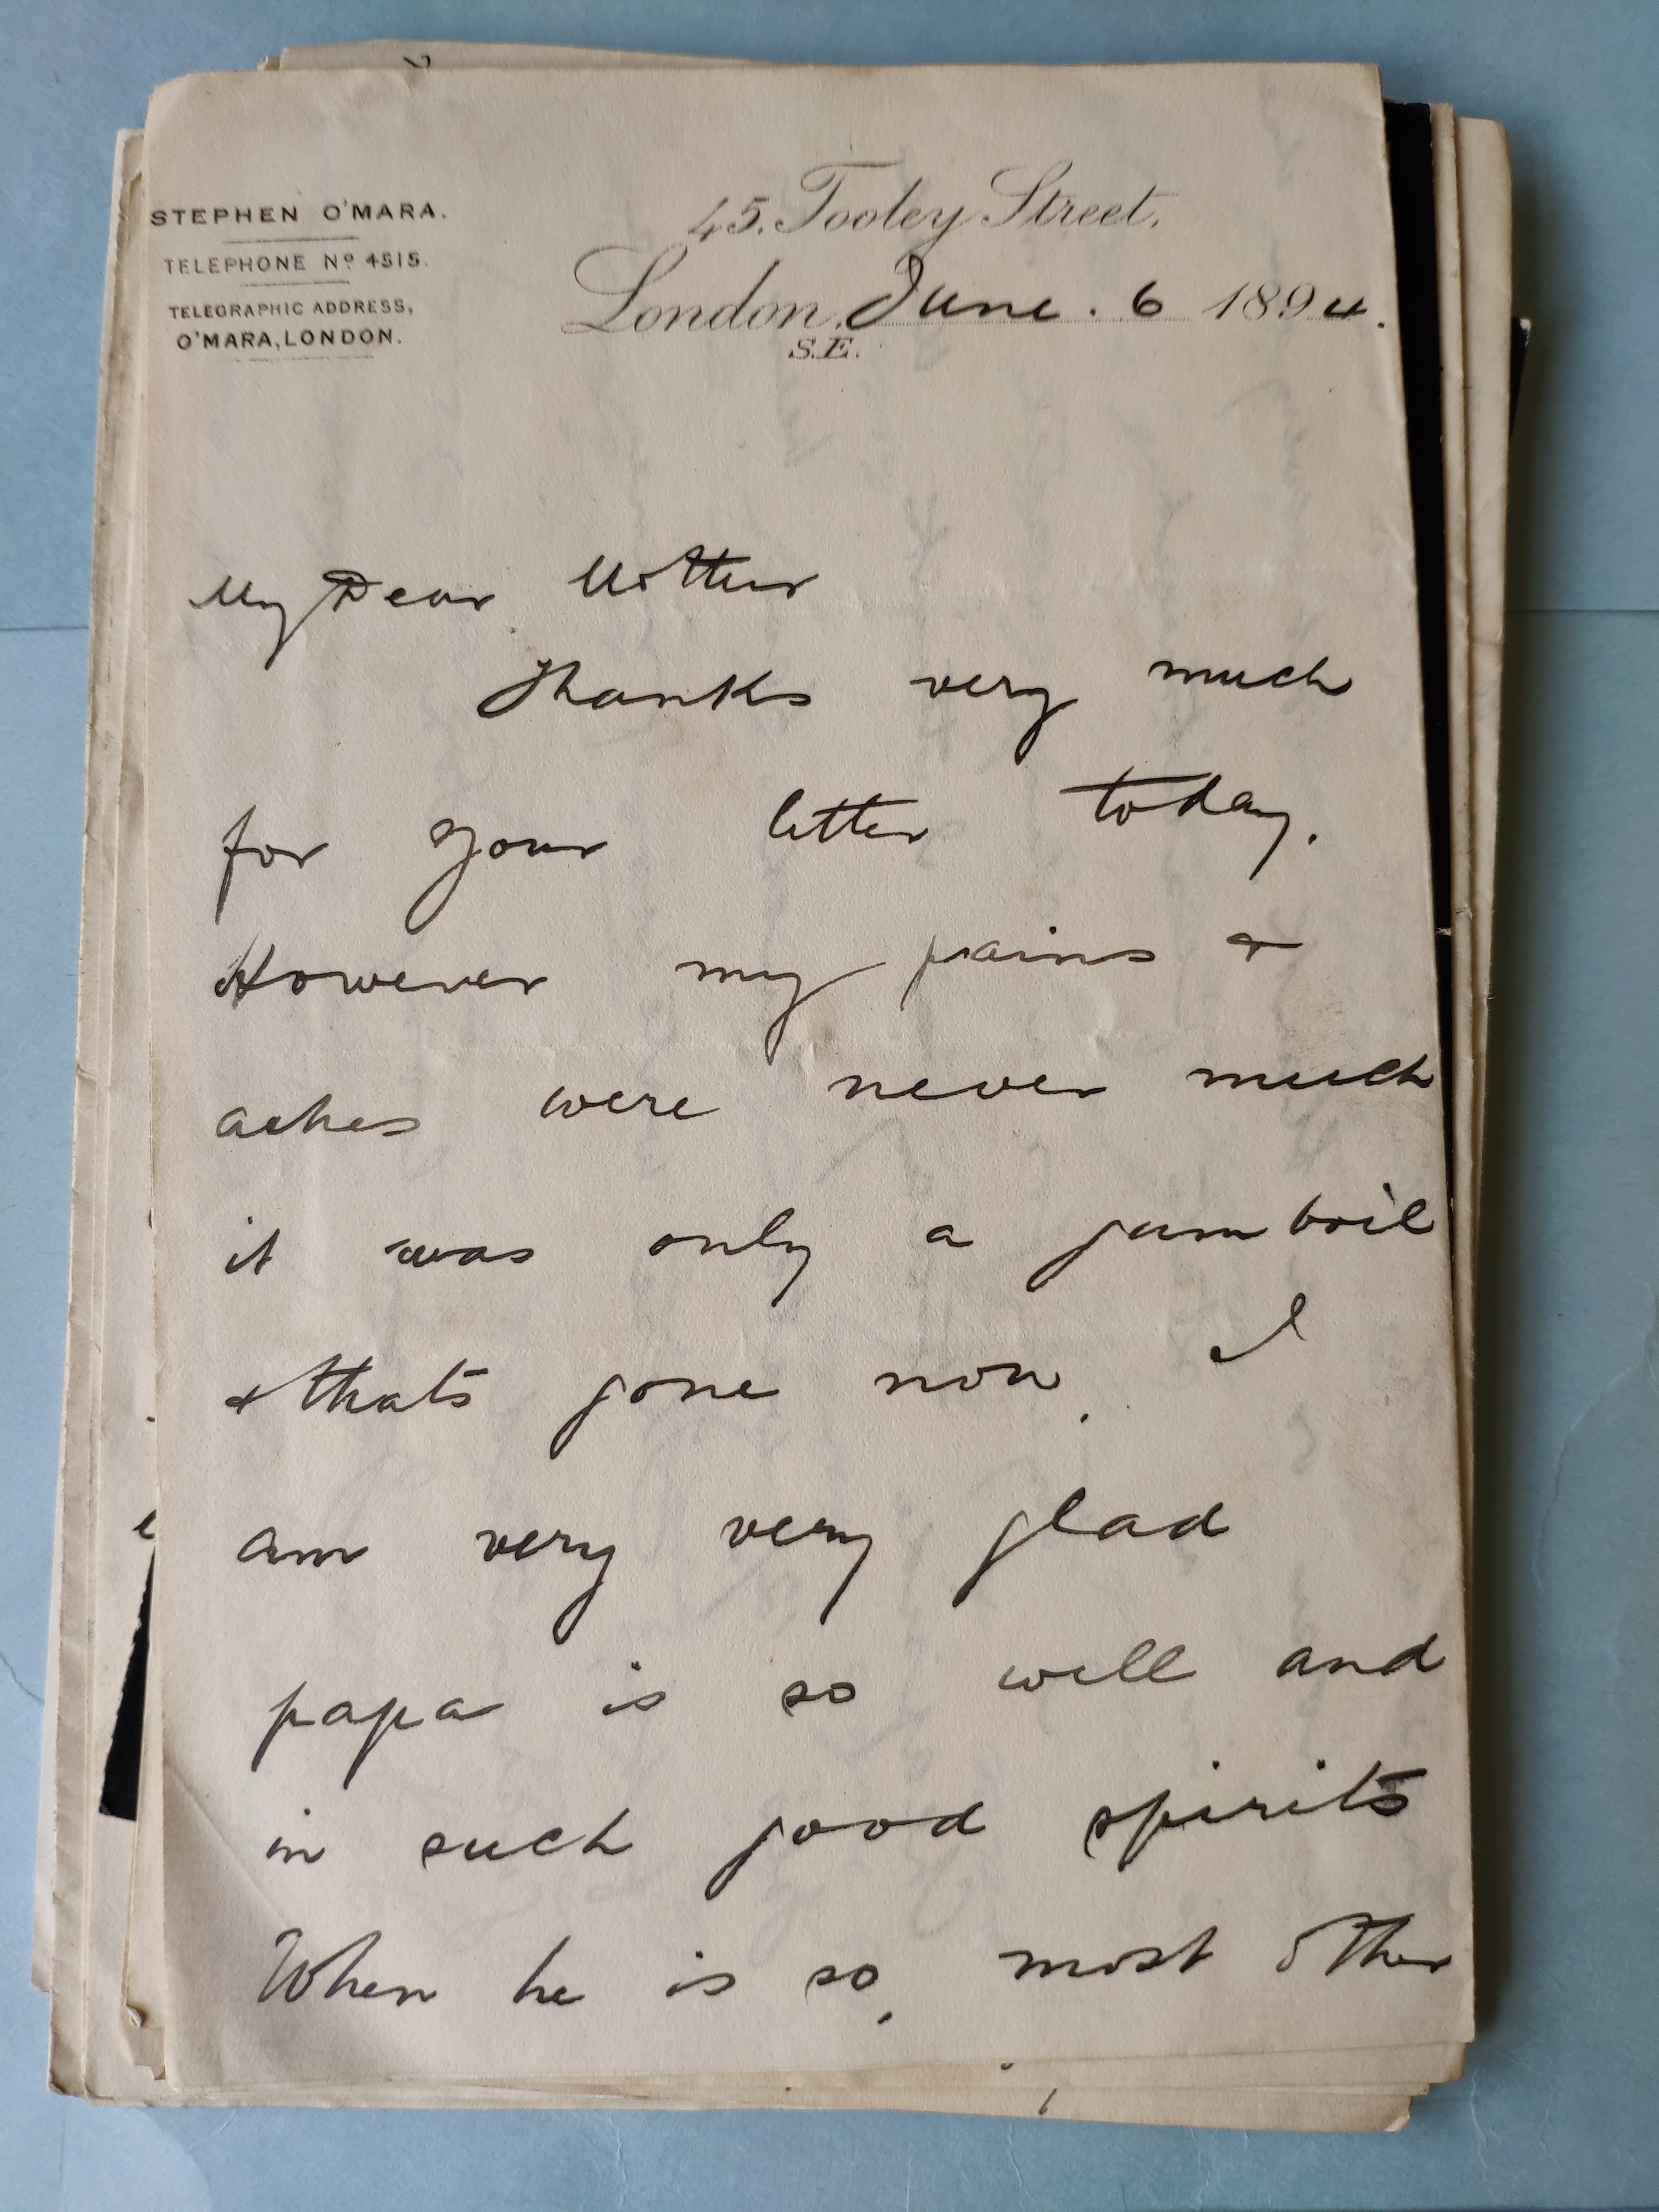 STEPHEN O'MARA.
TELEPHONE Nº 4515.
TELEGRAPHIC ADDRESS,
O'MARA, LONDON.
45. Tooley Street,
London, June. 6 1894.
S.E.
My Dear Mother
Thanks very much
for your letter today.
However my pains &
aches were never much
it was only a gumboil
& thats gone now. I
am very very glad
papa is so well and
in such good spirits
When he is so, most other